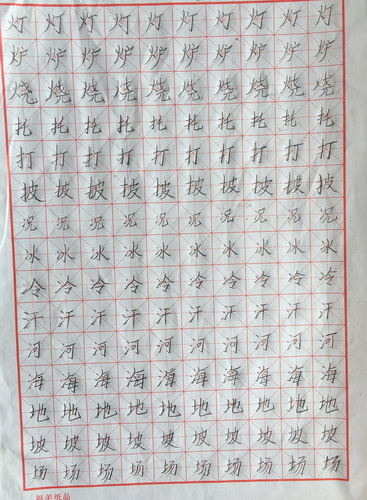 灯灯灯灯灯灯灯灯灯灯
炉炉炉炉炉炉炉炉炉炉
烧烧烧烧烧烧烧烧烧烧
托托托托托托托托托托
打打打打打打打打打打
披披披披披披披披披披
况况况况况况况况况况
冰冰冰冰冰冰冰冰冰冰
冷冷冷冷冷冷冷冷冷冷
汗汗汗汗汗汗汗汗汗汗
河河河河河河河河河河
海海海海海海海海海海
地地地地地地地地地地
坡坡坡坡坡坡坡坡坡坡
场场场场场场场场场场